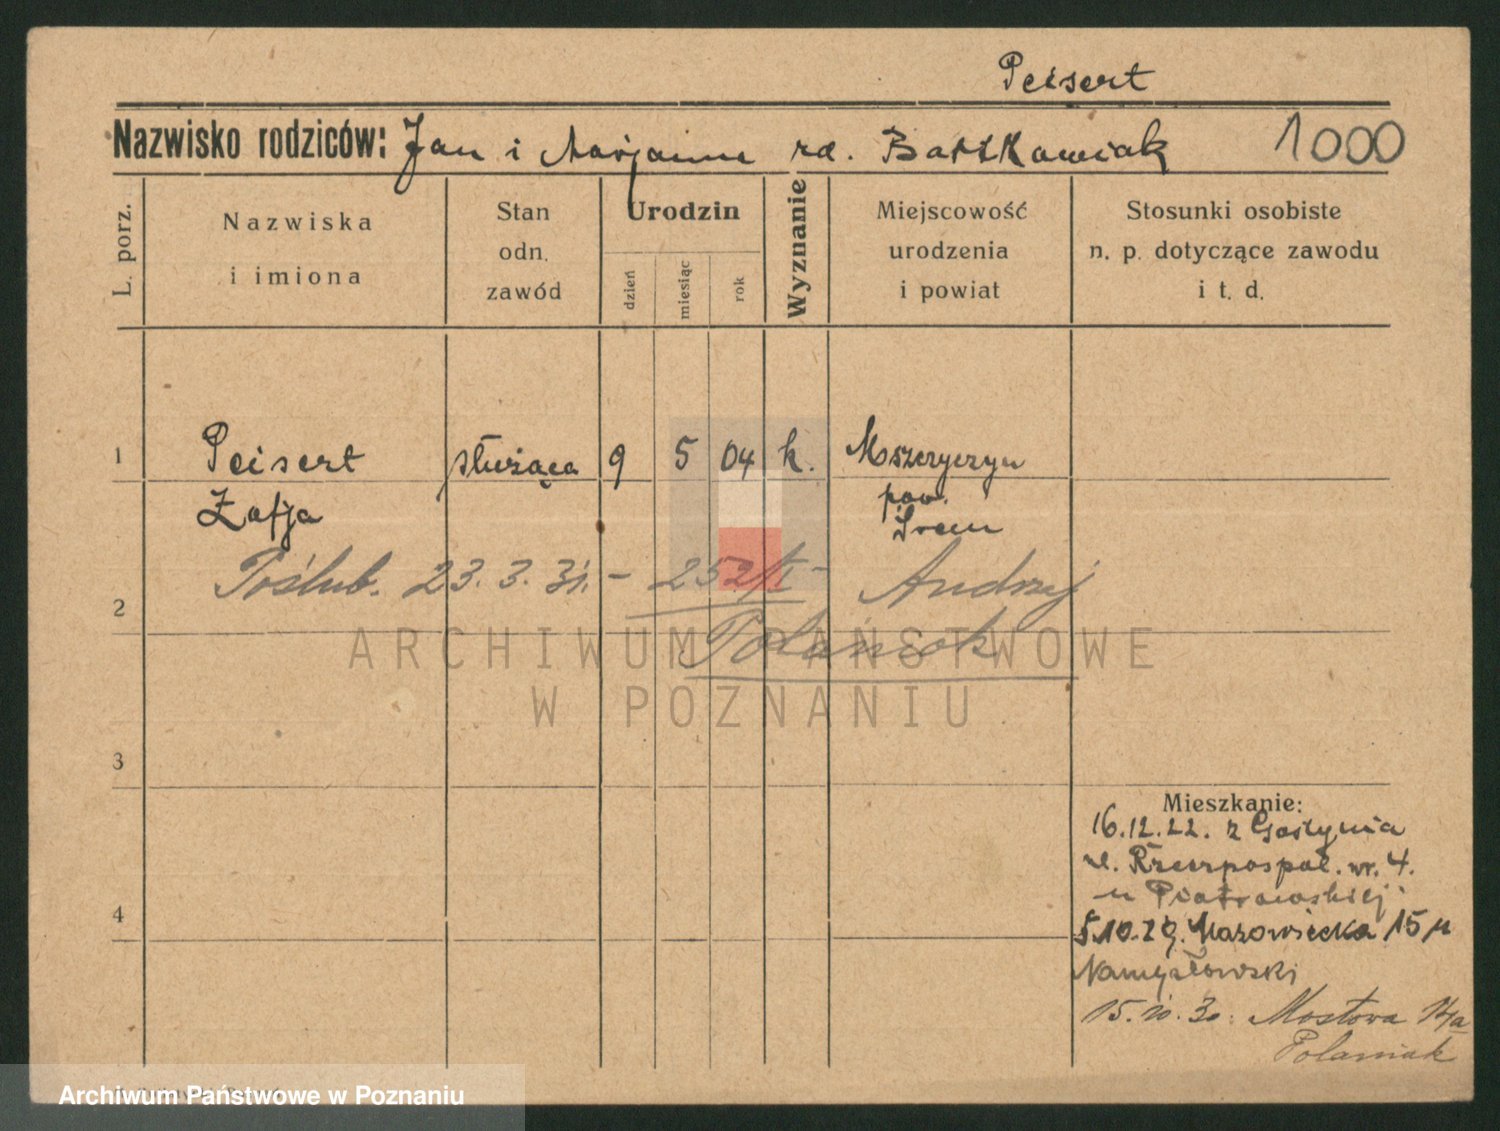 Peisert
Nazwisko rodziców: Jan i Marjanna rd. Bartkowiak 1000
L. porz.
Nazwiska i imiona
Stan odn. zawód
Urodzin
dzień
miesiąc
rok
Wyznanie
Miejscowość urodzenia i powiat
Stosunki osobiste n. p. dotyczące zawodu i t. d.
1 Peisert służąca 9 5 04 k.
Zofja pow.
Śrem
Poślub. 23. 3. 31. - 252/I - Andrzej
2
Polaniok
ARCHIWUM PAŃSTWOWE
W POZNANIU
3
Mieszkanie:
16.12.22. z Gostynia
ul. Rzeczpospol. nr. 4.
u Piotrowskiej
4
5.10.29. Mazowiecka 15 u
Namysłowski
15. 10. 30. Mostowa
Polaniak
Archiwum Państwowe w Poznaniu